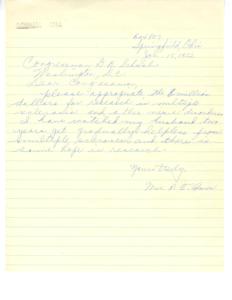 Springfield, Ohio
Congressman
Washington, D.C.
Dear Congressman,
please appropriate the million
dollars for research in multiple
sclerosis and other nerve disorders
I have watched my husband two
years get gradually helpless from
multiple sclerosis and there is
some hope in research.
Yours truly,
Mrs.